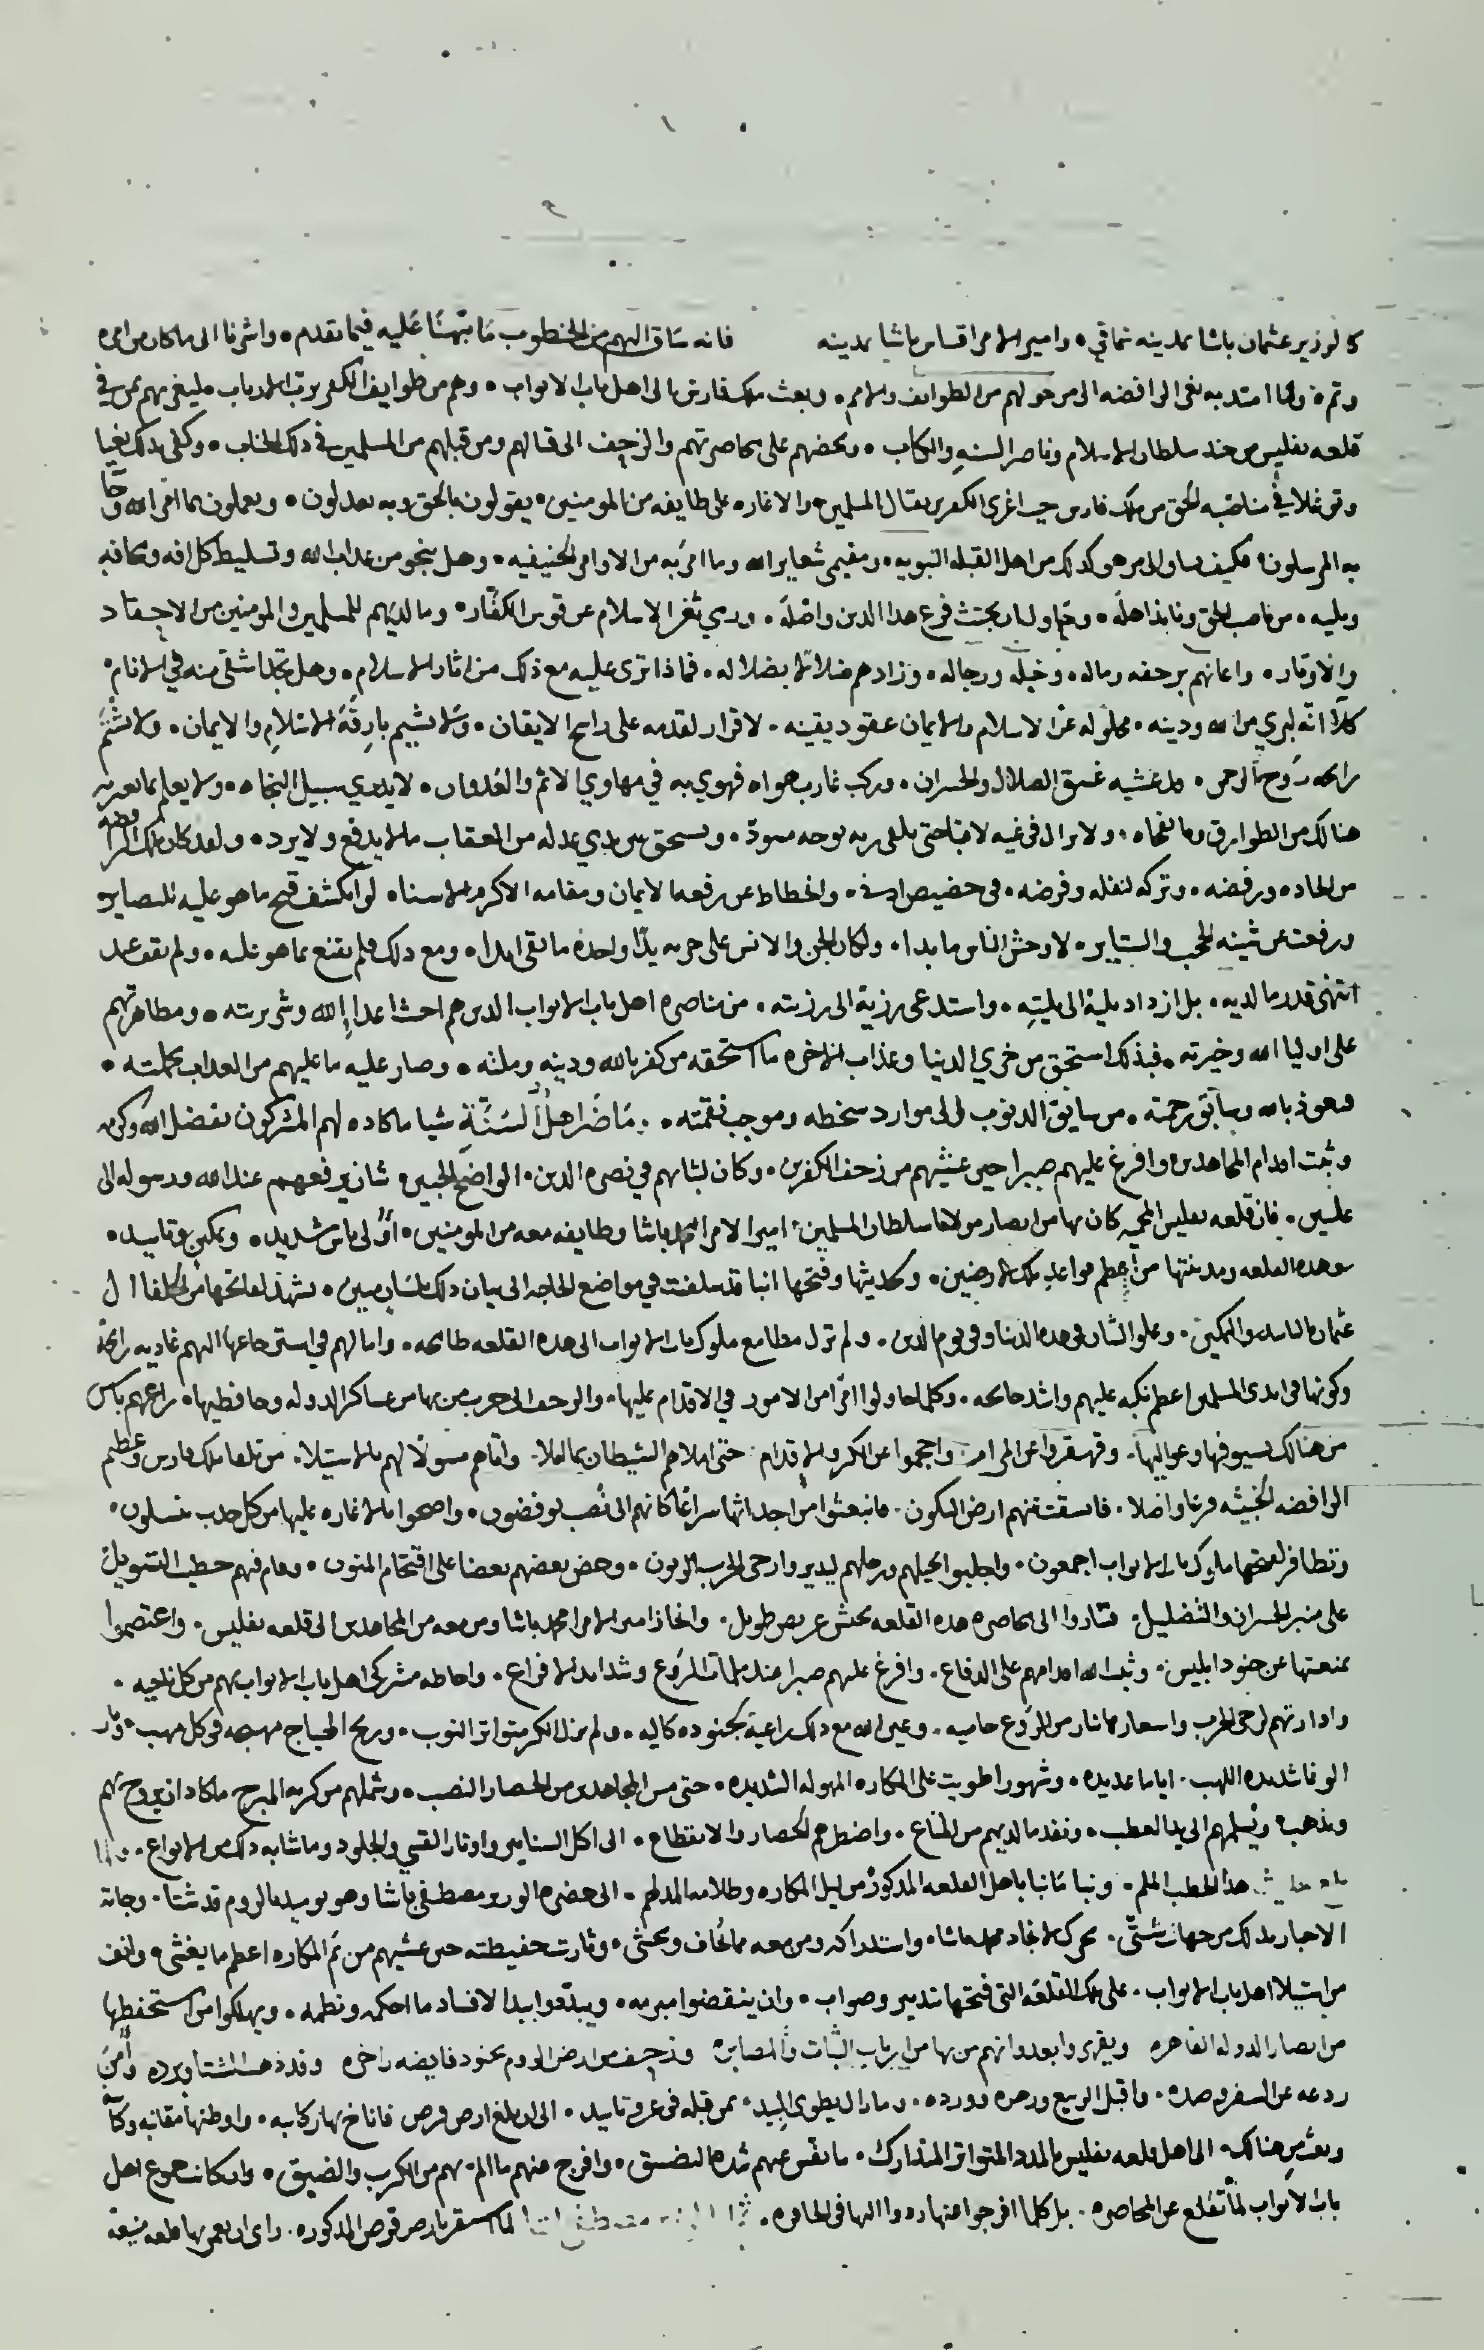 كالوزير عثمان باشا بمدينه شماقي وامير الامرا قباس باشا بمدينه فانه ساق اليهم من الخطوب ما نبهنا عليه فيما تقدم واشرنا الى ما كان من امره
وتم ولما امتد به بغى الرافضه الى من حولهم من الطوايف والامم وبعث ملك فارس الى اهل باب الابواب وهم من طوايف الكفر برب الارباب مليغريهم بمن في
قلعه تفليس من جند سلطان الاسلام وناصر السنه والكتاب ويحضهم على محاصرتهم والزحف الى قتالهم ومن قبلهم من المسلمين في ذلك الجناب وكفى بذلك بغيا
وتوغلا في مناصبه الحق من ملك فارس حيث اغرى الكفر بقتال المسلمين والاغاره على طايفه من المومنين يقولون بالحق وبه يعدلون ويعملون بما امر الله وجا
به المرسلون فكيف بمن هو كذلك من اهل القبله النبويه ومقيمي شعاير الله وما امر به من الاوامر الحنيفيه وهل ينجو من عذاب الله وتسليط كل افه ونكابه
وبليه من ناصب الحق ونابذ اهله وحاول ان يجتث فرع هذا الدين واصله ورمى ثغر الاسلام عن قوس الكفار وما لديهم للمسلمين والمومنين من الاحقاد
والاوتار واعانهم بزحفه وماله وخيله ورجاله وزادهم ضلالا بضلاله فماذا ترى عليه مع ذلك من اثار الاسلام وهل تجد اشقى منه في الانام
كلا انه لبري من الله ودينه محلوله عرا الاسلام والايمان عقود يقينه لا قرار لقدمه على راسخ الايقان ولا يشيم بارقة الاسلام والايمان ولا يشتم
رايحه روح الرحمن بل غشيه غسق الضلال والخسران وركب غارب هواه فهوى به في مهاوي الاثم والعدوان لا يهتدي سبيل النجاه ولا يعلم بما يعتريه
هنالك من الطوارق وما يغشاه ولا يزال في غيه لاهيا حتى يلقى ربه بوجه مسود ويستحق بين يدي عدله من العقاب ما لا يدفع ولا يرد ولقد كان ملك الرافضه
من الحاده ورفضه وتركه لنفله وفرضه في حضيض وانحطاط عن رفعه الايمان ومقامه الاكرم الاسنا لو انكشف قبح ما هو عليه للبصاير
ورفعت عن شينه الحجب والستاير لاوحش الناس ما بدا ولكان الجن والانس على حربه يدا واحدة ما بقى ابدا ومع ذلك فلم يقنع بما هو عليه ولم يقف عند
انتهى قدر ما لديه بل ازداد بلية الى بليته واستدعى رزية الى رزيته من مناصره اهل باب الابواب الذين هم اخبث اعدا الله وشر بريته ومظاهرتهم
على اوليا الله وخيرته فبذلك استحق من خزي الدنيا وعذاب الاخره ما استحقه من كفر بالله ودينه وملته وصار عليه ما عليهم من العذاب بكلمته
فنعوذ بالله وسابق رحمته من سابق الذنوب الى موارد سخطه وموجب نقمته ما ضر اهل السنة شيا ما كاده لهم المشركون بفضل الله وكرمه
وثبت اقدام المجاهدين وافرغ عليهم صبرا حين غشيهم من زحف الكفرين وكان لثباتهم في نصره الدين الواضح الجبين شان يرفعهم عند الله ورسوله الى
عليين فان قلعه تفليس المحميه كان بها من انصار مولانا سلطان المسلمين امير الامرا محمد باشا وطايفه معه من المومنين اولى باس شديد وتمكين وتاييد
وهذه القلعه ومدينتها من اعظم قواعد تلك الارضين وحديثها وفتحها انبا قد سلفت في مواضع الحاجه الى بيان ذلك بلسان مبين تشهد لفاتحها من الخلفا ال
عثمان بالتاييد والتمكين وعلو الشان في هذه الدنيا وفي يوم الدين ولم تزل مطامع ملوك باب الابواب الى هذه القلعه طامحه وامالهم في استرجاعها اليهم غاديه رايحة
وكونها في ايدى المسلمين اعظم نكبه عليهم واشد جايحه وكلما حاولوا امرا من الامور في الاقدام عليها والزحف الى حرب من بها من عساكر الدوله وحافظيها راعهم باس
من هنالك بسيوفها وعواليها وقهقروا عن المرام واحجموا عن الكر والاقدام حتى املاهم الشيطان بما املا واتاهم مسولا لهم بالاستيلا من تلقا ملك فارس وعظيم
الرافضه الخبيثه فرعا واصلا فانشقت عنهم ارض السكون فانبعثوا من اجداثها سراعا كانهم الى نصب يوفضون واصبحوا بالاغاره عليها من كل حدب ينسلون
وتظافر لفتحها ملوك باب الابواب اجمعون واجلبوا بخيلهم ورجلهم ليديروا رحى الحرب الزبون وحض بعضهم بعضا على اقتحام المنون وقام فيهم خطيب التسويل
على منبر الخسران والتضليل فساروا الى محاصره هذه القلعه بجيش عريض طويل وانحاز امير الامرا محمد باشا ومن معه من المجاهدين الى قلعه تفليس واعتصموا
بمنعتها عن جنود ابليس وثبت الله اقدامهم على الدفاع وافرغ عليهم صبرا عند ملمات الروع وشدايد الافزاع واحاطه مشركى اهل باب الابواب بهم من كل ناحيه
وادارتهم لرحى الحرب واسعارها نار من الروع حاميه وعين الله مع ذلك راعية لجنوده كاليه ولم يزل الكر متواتر النوب وريح الهياج مهبه في كل مهب ونار
الوغا شديده اللهب اياما عديده وشهورا طويت على المكاره المهوله الشديده حتى مس المجاهدين من الحصار النصب وشملهم من كربه المبرح ما كاد ان يروح بهم
ويذهب ويسلمهم الى يد العطب ونفد ما لديهم من المتاع واضطرهم الحصار والانقطاع الى اكل السنانير واوتار القسي والجلود وما شابه ذلك من الانواع ولما
هذا الخطب الملم ونبا بانبا باهل القلعه المذكوره من ليل المكاره وظلامه المدلهم الى حضره الوزير مصطفى باشا وهو يوميذ بالروم قد شتا وجاته
الاخبار بذلك من جهات شتى تحرك لانجاد محمد باشا واستدراكه ومن معه مما يخاف ويخشى وثارت حفيظته حين غشيهم من يم المكاره اعظم ما يغشى وانف
من استيلا اهل باب الابواب على تلك القلعه التي فتحها بتدبير وصواب وان ينقضوا مبرمه ويبدوا يدا لافساد ما احكمه ونظمه ويهلكوا من استحفظها
من انصار الدوله القاهره ويقهروا بعدوانهم من بها من ارباب الثبات والمصابره وزحف من ارض الروم بجنود فايضه زاخره وقد ذهب الشتا وبرده وامن
ردعه عن السفر وصده واقبل الربيع وزهره وورده وما زال يطوى البيد بمن قبله في عز وتاييد الى ان بلغ ارض قرص فاناخ بها ركابه واوطنها مقانبه وكتابه
وبعث من هنالك الى اهل قلعه تفليس بالمدد المتواتر المتدارك ما نفس عنهم شده التضييق وافرج عنهم ما الم بهم من الكرب والضيق وان كانت جموع اهل
باب الابواب لما تقلع عن المحاصره بل كلما افرجوا عنها ردوا اليها في الحافره لما استقر بارض قرص المذكوره راى ان يعمر بها قلعه منيعة